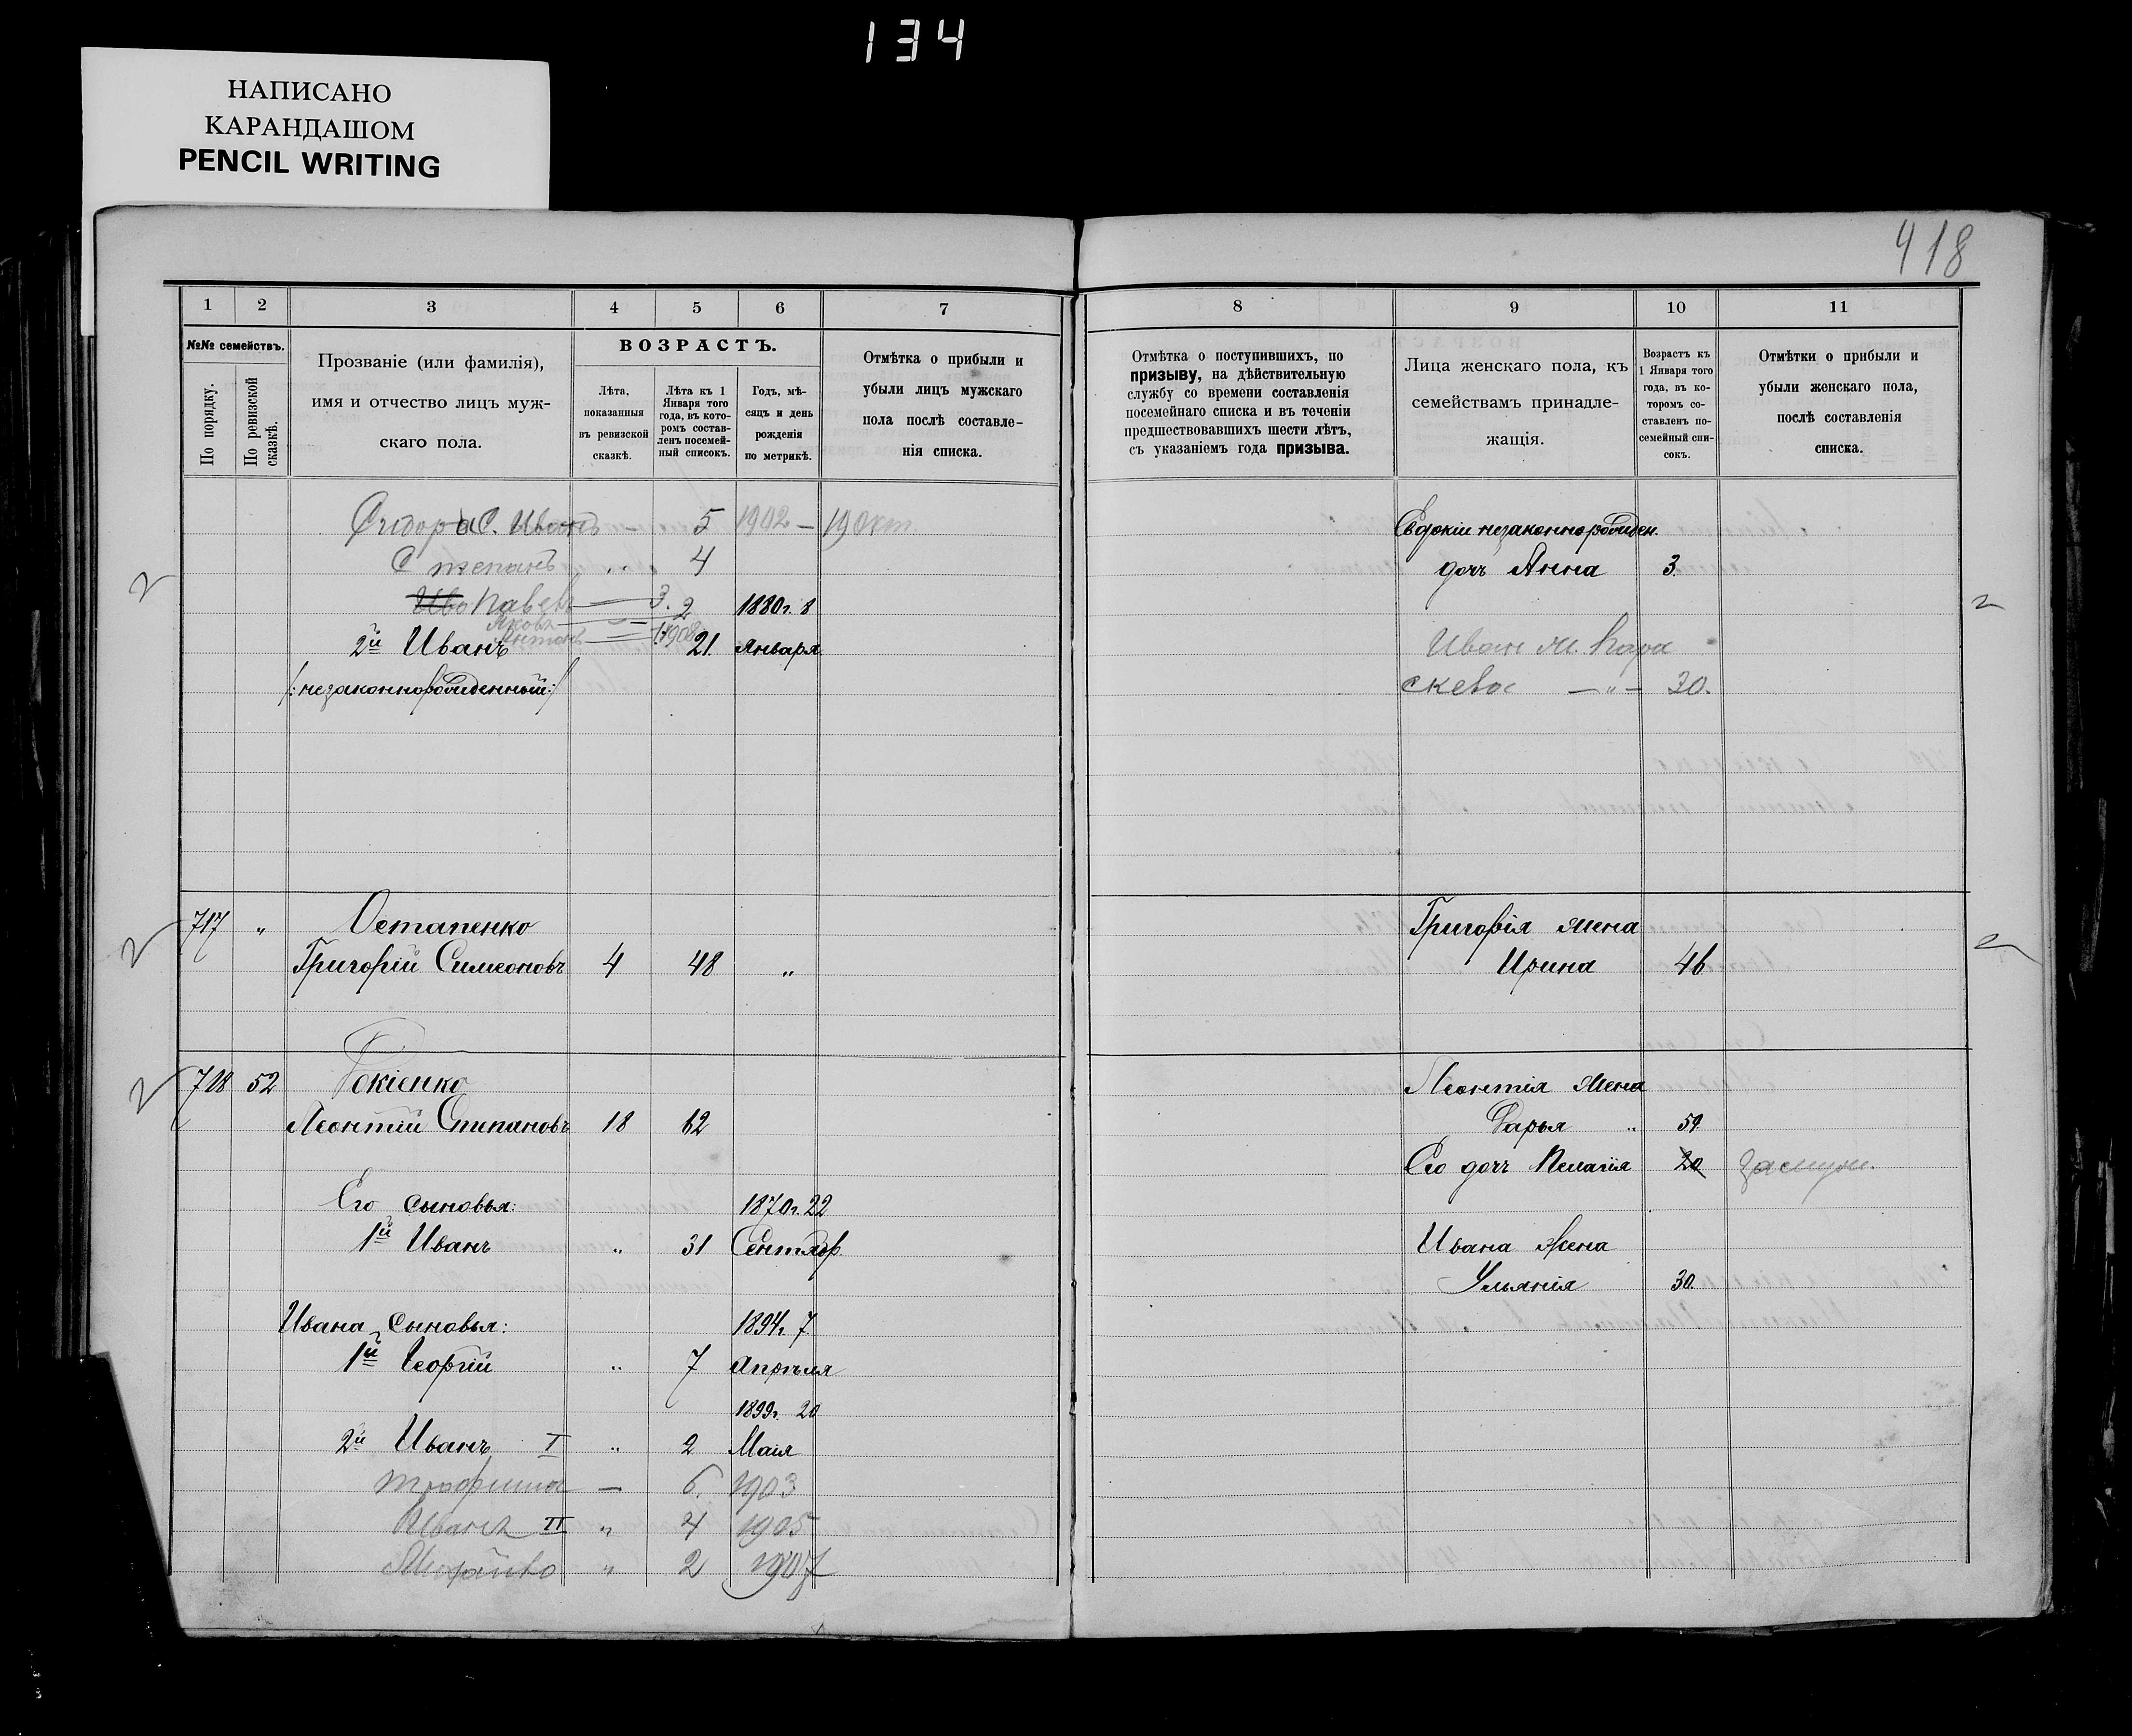 134
НАПИСАНО
КАРАНДАШОМ
PENCIL WRITING
418
1 2 3 4 5 6 7
№№ семействъ.
По порядку.
По ревизской сказкѣ.
Прозваніе (или фамилія),
имя и отчество лицъ муж-
скаго пола.
ВОЗРАСТЪ.
Лѣта,
показанныя
въ ревизской
сказкѣ.
Лѣта къ 1
Января того
года, въ кото-
ромъ состав-
ленъ посемей-
ный списокъ.
Годъ, мѣ-
сяцъ и день
рожденія
по метрикѣ.
Отмѣтка о прибыли и
убыли лицъ мужскаго
пола послѣ составле-
нія списка.
С. Иванъ — 5 1902 — 19 окт.
Степанъ „ 4
Иво Павелъ 3. 2 1880г. 8
Яковъ
Антонъ 1908
2й Иванъ 21. Января
/:незаконнорожденный:/
717 „ Остапенко
Григорій Симеоновъ 4 48 „
718 52 Фокіенко
Леонтій Стипановъ 18 62
Его сыновья: 1870г. 22
1й Иванъ „ 31 Сентябр
Ивана сыновья: 1894г. 7
1й Георгій „ 7 Апрѣля
1899г. 20
2й Иванъ I „ 2 Маія
— 6. 1903
Иванъ II „ 4 1905
„ 2 1907
8 9 10 11
Отмѣтка о поступившихъ, по
призыву, на дѣйствительную
службу со времени составленія
посемейнаго списка и въ теченіи
предшествовавшихъ шести лѣтъ,
съ указаніемъ года призыва.
Лица женскаго пола, къ
семействамъ принадле-
жащія.
Возрастъ къ
1 Января того
года, въ ко-
торомъ со-
ставленъ по-
семейный спи-
сокъ.
Отмѣтки о прибыли и
убыли женскаго пола,
послѣ составленія
списка.
Евдокіи незаконнорожден.
дочь Анна 3.
Иван ж. Пара
скева — „ — 30.
Григорія жена
Ирина 46
Леонтія жена
Дарья „ 59
Его дочь Пелагія 20 замуж.
Ивана жена
Ульянія 30.